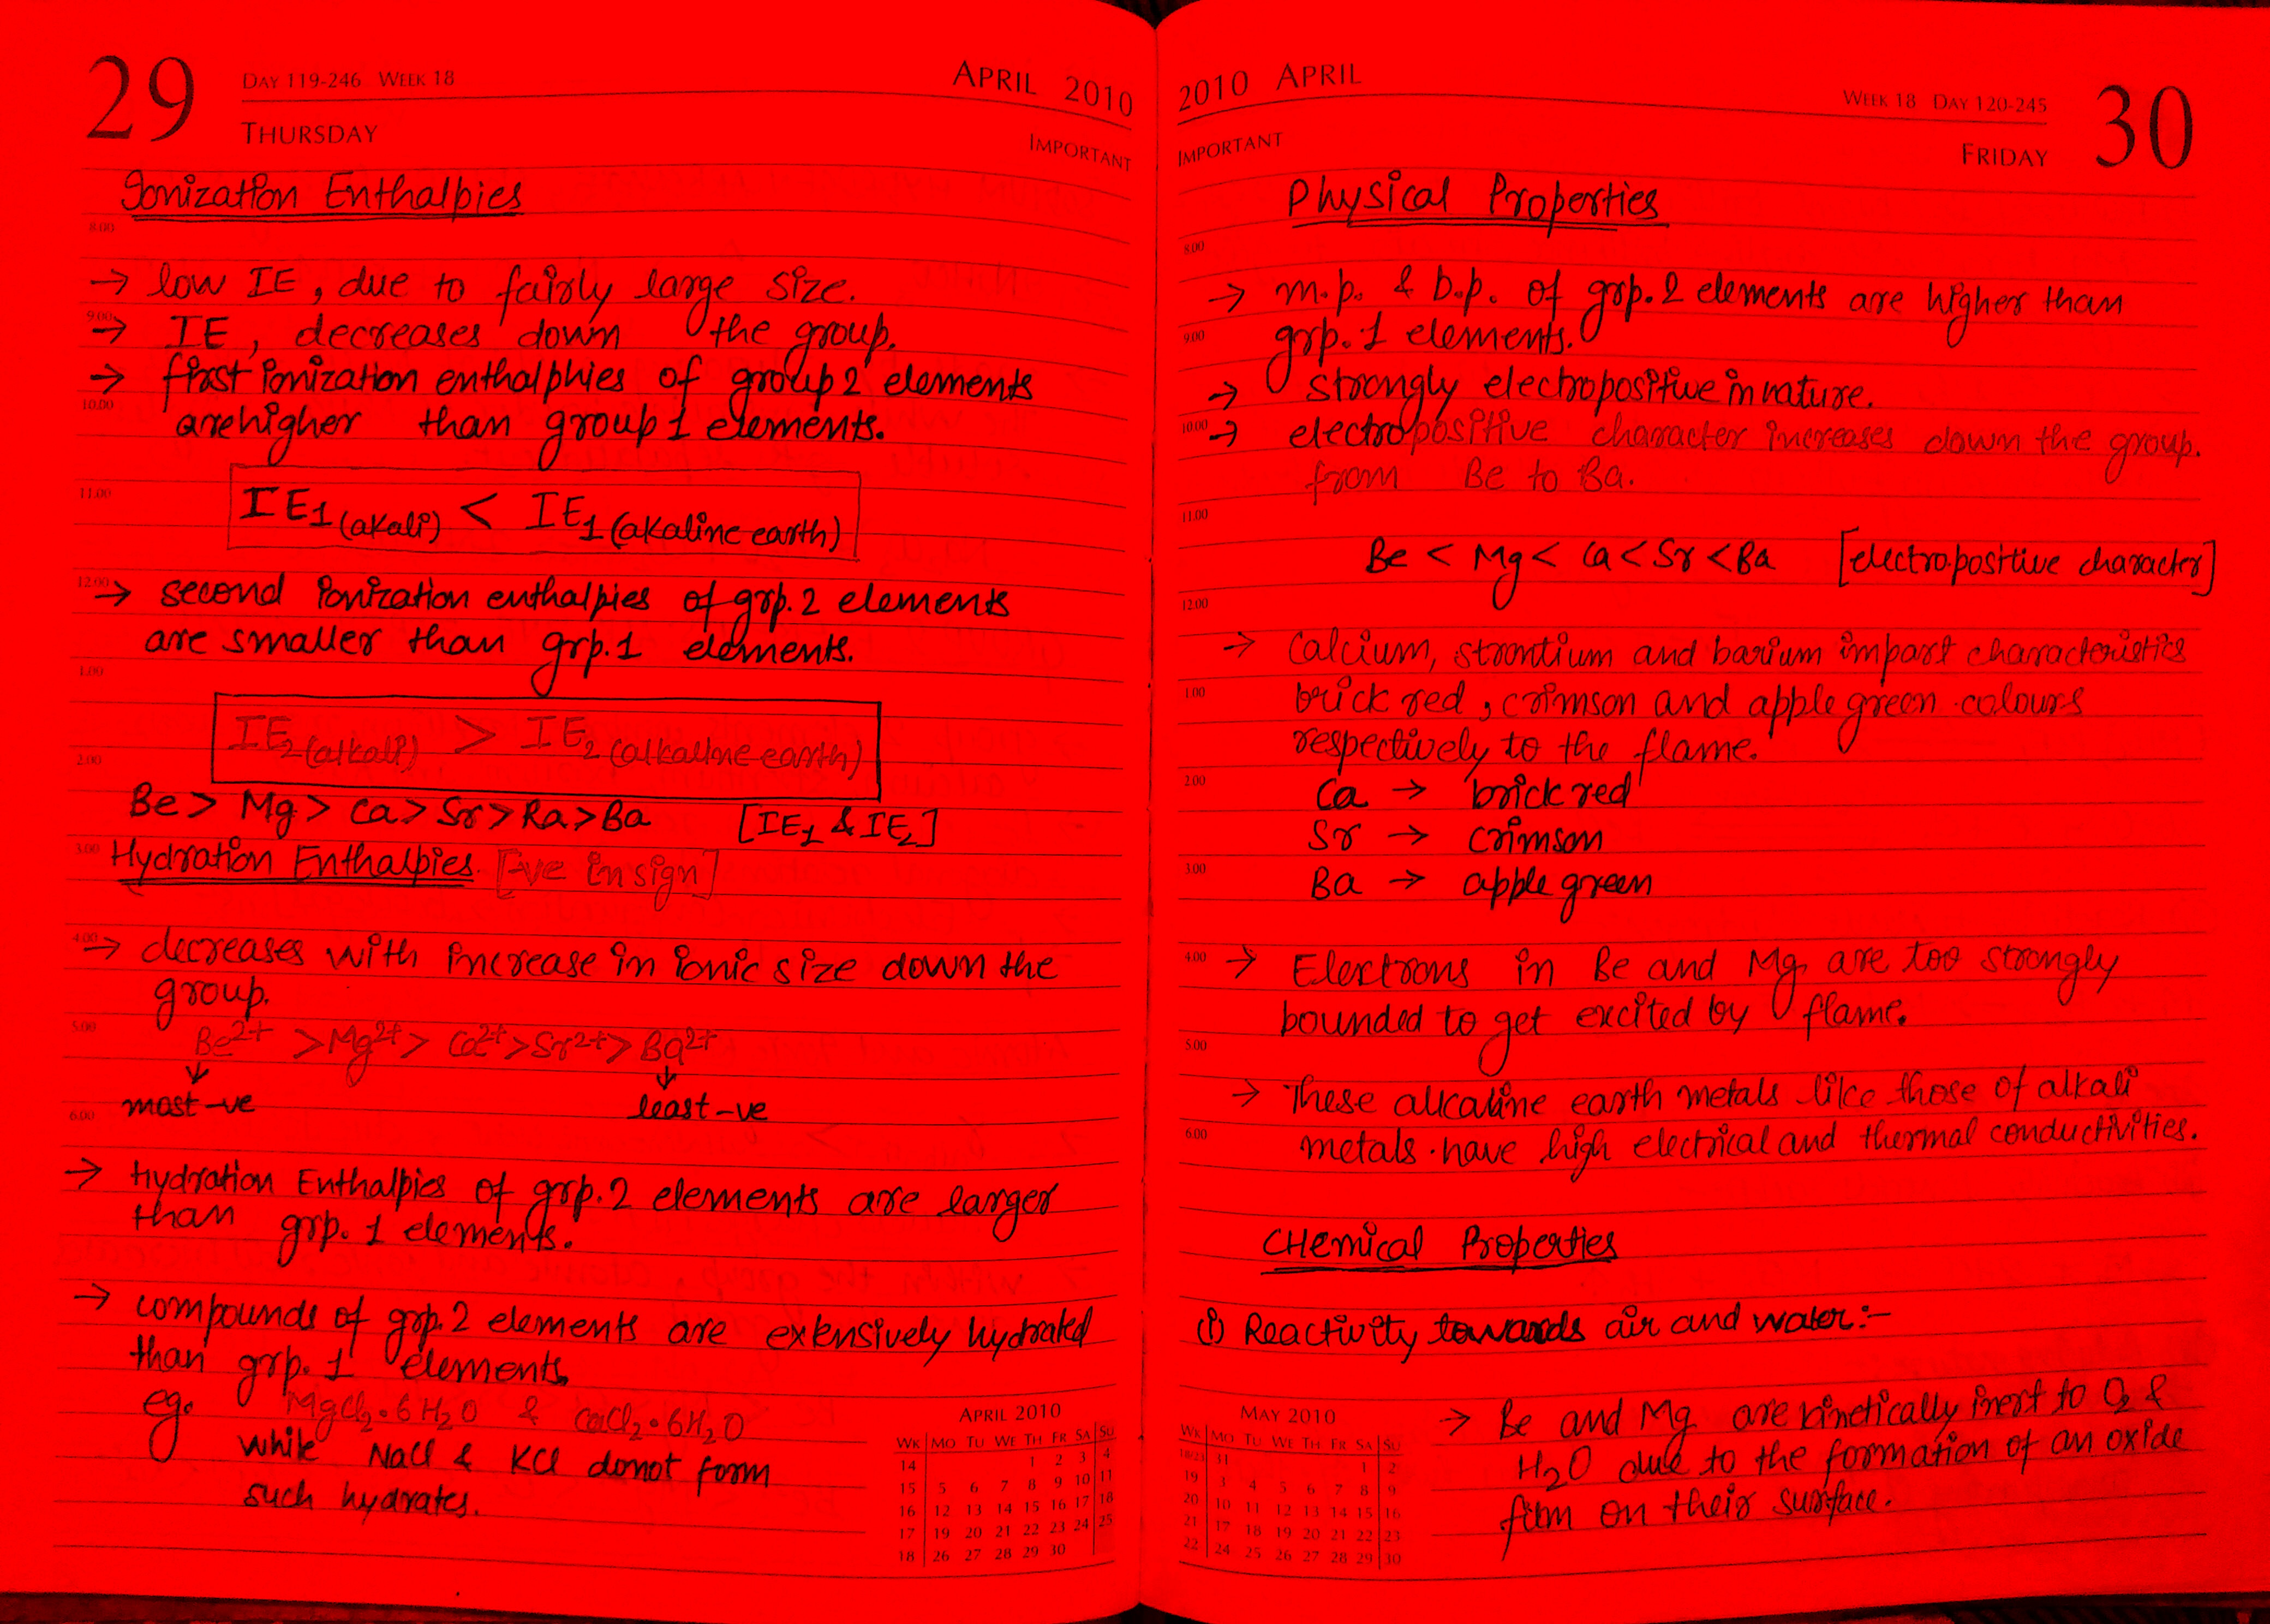 29
DAY 119-246 WEEK 18
APRIL 2010
THURSDAY
IMPORTANT
Ionization Enthalpies
8.00
→ low IE, due to fairly large size.
9.00
→ IE, decreases down the group.
→ first ionization enthalphies of group 2 elements
10.00
are higher than group 1 elements.
11.00
IE1 (akali) < IE1 (akaline earth)
12.00
→ second ionization enthalpies of grp. 2 elements
are smaller than grp. 1 elements.
1.00
IE2 (alkali) > IE2 (alkaline earth)
2.00
Be > Mg > Ca > Sr > Ra > Ba [IE1 & IE2]
3.00
Hydration Enthalpies. [-ve in sign]
4.00
→ decreases with increase in ionic size down the
group.
5.00
Be2+ > Mg2+ > Ca2+ > Sr2+ > Ba2+
↓ ↓
6.00
most -ve least -ve
→ Hydration Enthalpies of grp. 2 elements are larger
than grp. 1 elements.
→ compounds of grp. 2 elements are extensively hydrated
than grp. 1 elements.
eg. MgCl2.6H2O & CaCl2.6H2O
while NaCl & KCl donot form
such hydrates.
APRIL 2010
WK MO TU WE TH FR SA SU
14 1 2 3 4
15 5 6 7 8 9 10 11
16 12 13 14 15 16 17 18
17 19 20 21 22 23 24 25
18 26 27 28 29 30
2010 APRIL
WEEK 18 DAY 120-245
30
IMPORTANT
FRIDAY
Physical Properties
8.00
→ m.p. & b.p. of grp. 2 elements are higher than
9.00
grp. 1 elements.
→ strongly electropositive in nature.
10.00
→ electropositive character increases down the group.
from Be to Ba.
11.00
Be < Mg < Ca < Sr < Ba [electropositive character]
12.00
→ Calcium, strontium and barium impart characteristics
1.00
brick red, crimson and apple green colours
respectively to the flame.
2.00
Ca → brick red
Sr → crimson
3.00
Ba → apple green
4.00
→ Electrons in Be and Mg are too strongly
bounded to get excited by flame.
5.00
→ These alkaline earth metals like those of alkali
6.00
metals have high electrical and thermal conductivities.
CHemical Properties
(i) Reactivity towards air and water:-
→ Be and Mg are kinetically inert to O2 &
H2O due to the formation of an oxide
film on their surface.
MAY 2010
WK MO TU WE TH FR SA SU
31 1 2
19 3 4 5 6 7 8 9
20 10 11 12 13 14 15 16
21 17 18 19 20 21 22 23
22 24 25 26 27 28 29 30